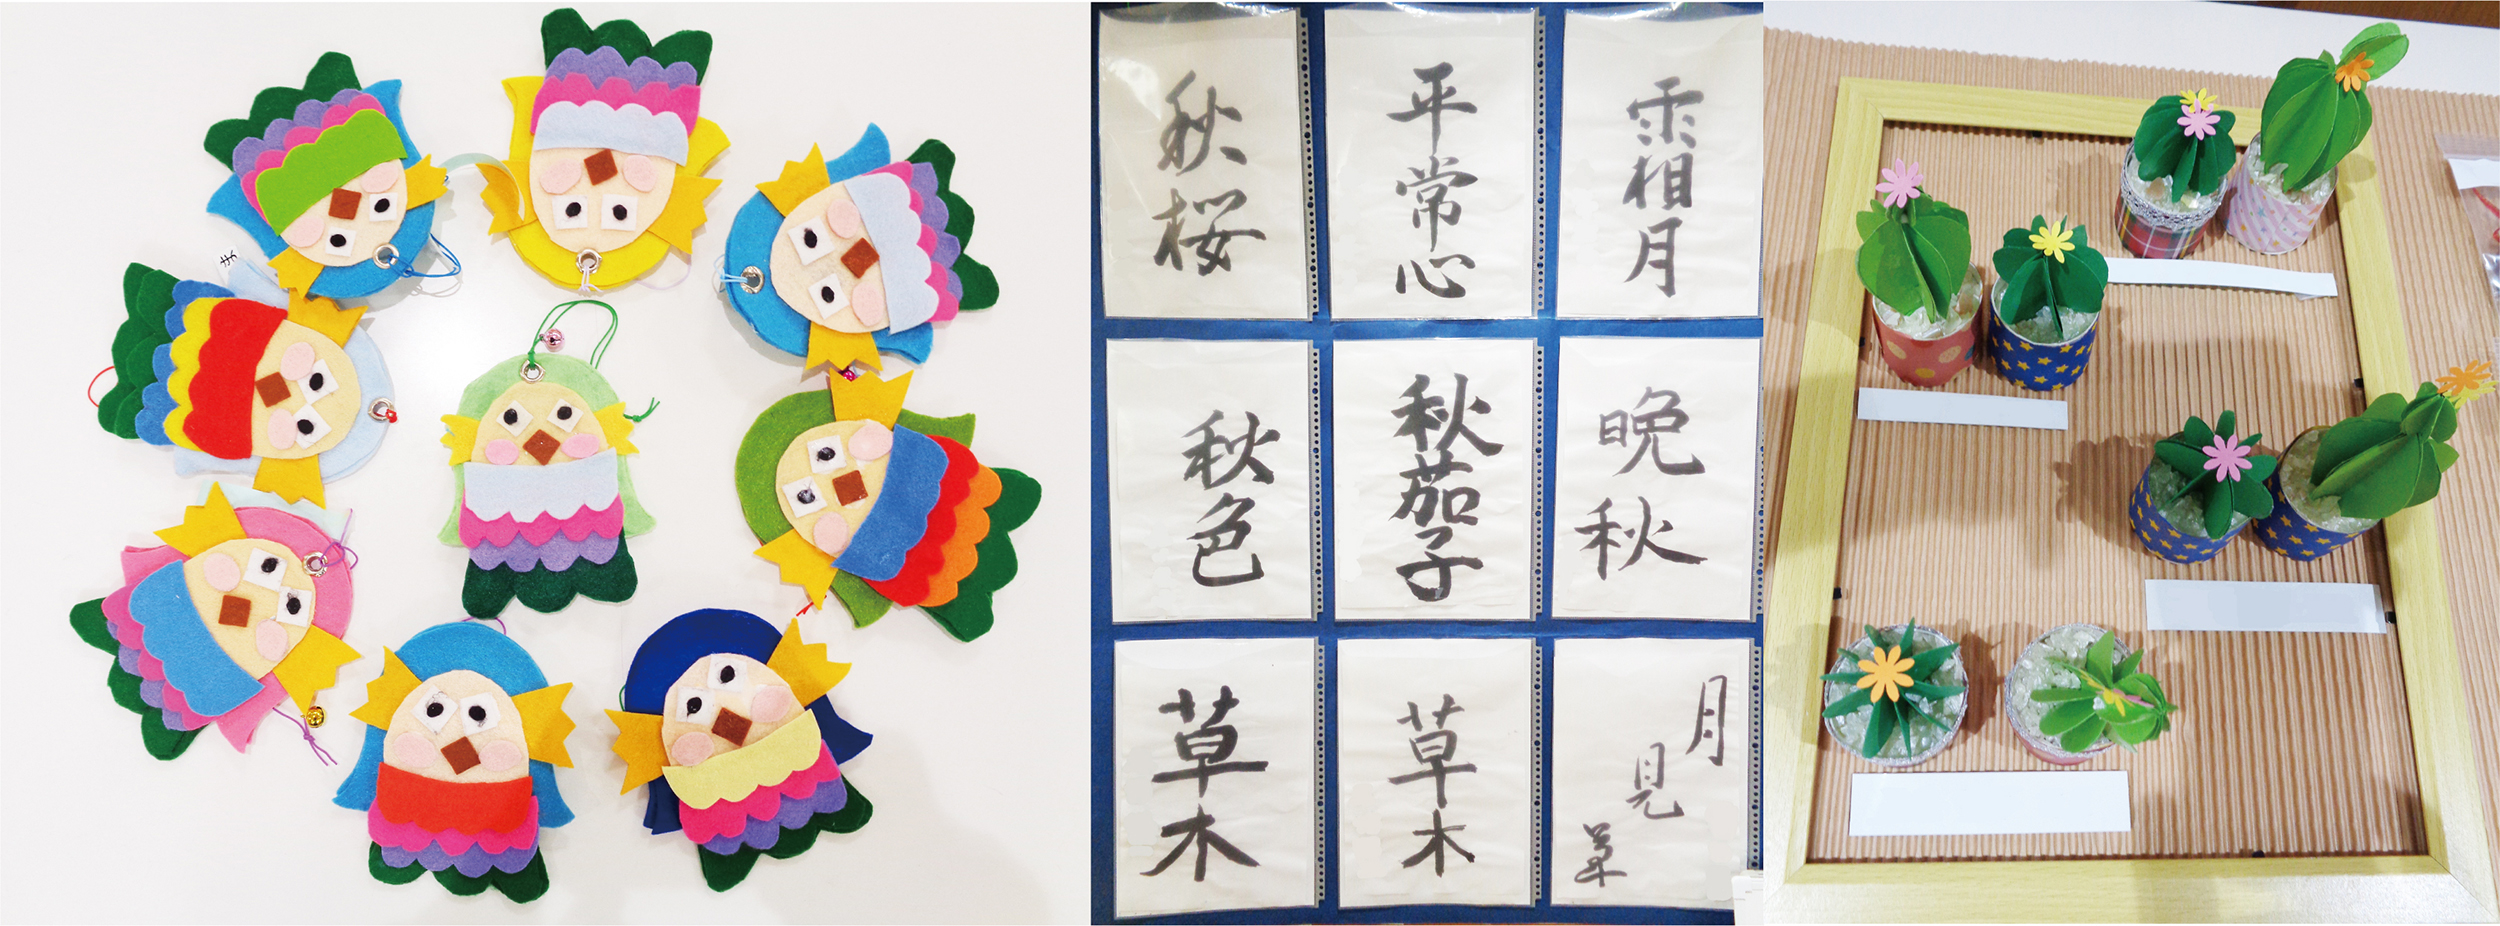 秋桜
平常心
霜月
秋色
秋茄子
晩秋
草木
草木
月見草